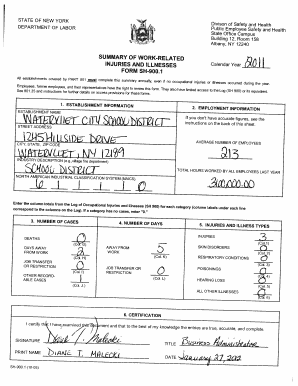 STATE OF NEW YORK
DEPARTMENT OF LABOR
Division of Safety and Health
Public Employee Safety and Health
State Office Campus
Building 12, Room 158
Albany, NY 12240
SUMMARY OF WORK-RELATED
INJURIES AND ILLNESSES
FORM SH-900.1
Calendar Year 2011
All establishments covered by PART 801 must complete this summary annually, even if no occupational injuries or illnesses occurred during the year.
Employees, former employees, and their representatives have the right to review this form. They also have limited access to the Log (SH 900) or its equivalent.
See 801.35 and instructions for further details on access provisions for these forms.
1. ESTABLISHMENT INFORMATION
ESTABLISHMENT NAME
WATERVLIET CITY SCHOOL DISTRICT
STREET ADDRESS
1245 HILLSIDE DRIVE
CITY, STATE, ZIP CODE
WATERVLIET, NY 12189
INDUSTRY DESCRIPTION (e.g. village fire department)
SCHOOL DISTRICT
NORTH AMERICAN INDUSTRY CLASSIFICATION SYSTEM (NAICS)
6 1 1 1 1 0
2. EMPLOYMENT INFORMATION
If you don't have accurate figures, see the
instructions on the back of this sheet.
AVERAGE NUMBER OF EMPLOYEES
213
TOTAL HOURS WORKED BY ALL EMPLOYEES LAST YEAR
300,000.00
Enter the column totals from the Log of Occupational Injuries and Illnesses (SH 900) for each category (column labels under each line
correspond to the columns on the Log). If a category has no cases, enter "0."
3. NUMBER OF CASES
DEATHS 0
DAYS AWAY
FROM WORK 2
JOB TRANSFER
OR RESTRICTION 0
OTHER RECORD-
ABLE CASES 1
4. NUMBER OF DAYS
AWAY FROM
WORK 5
(Col. K)
JOB TRANSFER OR
RESTRICTION 0
(Col. L)
5. INJURIES AND ILLNESS TYPES
INJURIES 3
SKIN DISORDERS
RESPIRATORY CONDITIONS 0
POISONINGS 0
HEARING LOSS
ALL OTHER ILLNESSES
6. CERTIFICATION
I certify that I have examined this document and that to the best of my knowledge the entries are true, accurate, and complete.
SIGNATURE Diane T. Malecki
TITLE Business Administrator
PRINT NAME DIANE T. MALECKI
DATE January 27, 2012
SH-900.1